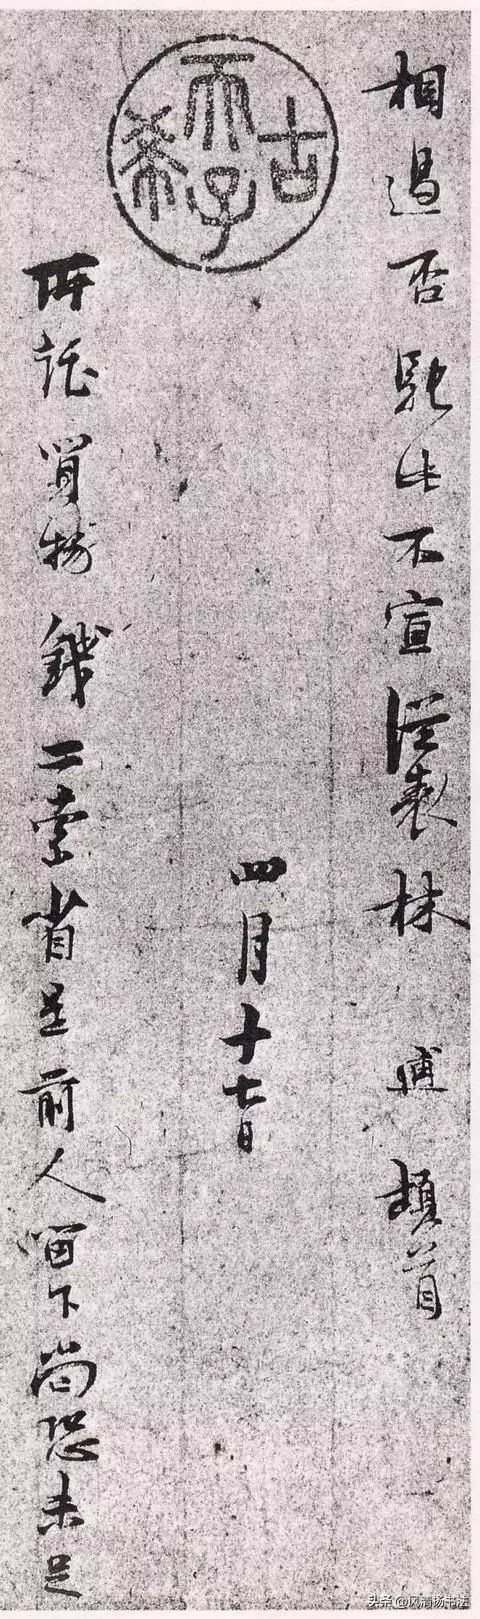 相過否馳此不宣從表林逋頓首
古稀天子
四月十七日
所託買物錢二索省是前人留下尚恐未足
头条@风清扬书法